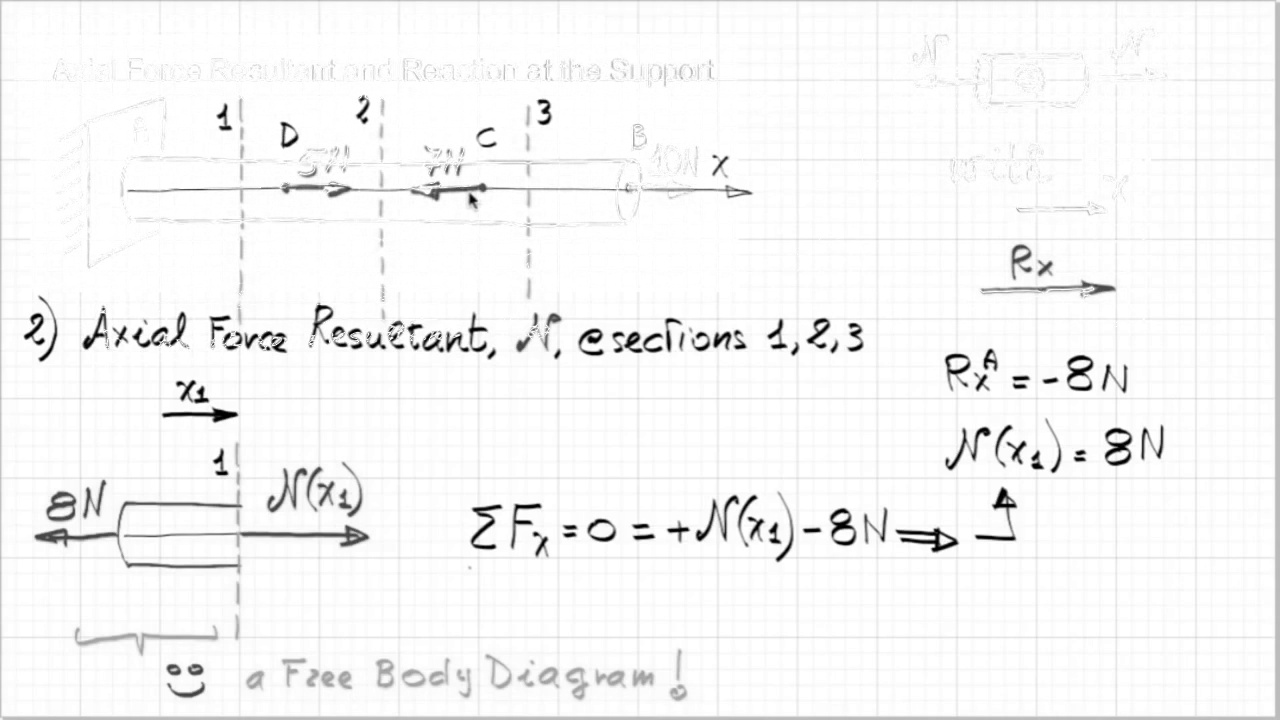 Axial Force Resultant and Reaction at the Support
N N
1 2 3
A D C B
5N 7N 10N x
with
x
Rx
2) Axial Force Resultant, N, @sections 1,2,3
Rx^A = -8N
x1
N(x1) = 8N
1
8N N(x1)
ΣFx = 0 = +N(x1) - 8N ⇒
a Free Body Diagram!